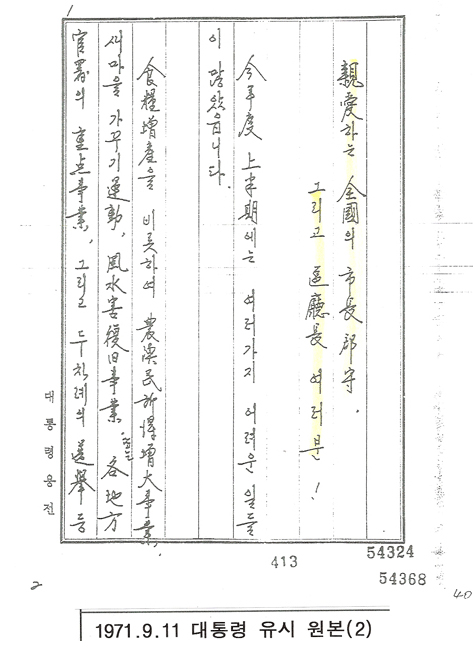 1
親愛하는 全國의 市長 郡守.
그리고 區廳長 여러분!
今年度 上半期에는 여러가지 어려운 일들
이 많았읍니다.
食糧增産을 비롯하여 農漁民所得增大事業,
새마을 가꾸기運動, 風水害復旧事業, 또는 各地方
官署의 重点事業, 그리고 두차례의 選擧 등
대통령용전
54324
413
54368
2
40
1971.9.11 대통령 유시 원본(2)